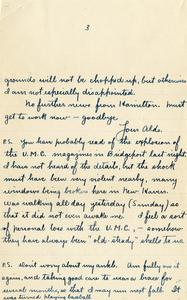 3
grounds will not be chopped up, but otherwise
I am not especially disappointed.
No further news from Hamilton. Must
get to work now — goodbye
Your Aldo.
P.S. You have probably read of the explosion of
the U.M.C. magazines in Bridgeport last night.
I have not heard of the details, but the shock
must have been very violent nearby, many
windows being broken here in New Haven. I
was walking all day yesterday (Sunday) so
that it did not even awake me. I feel a sort
of personal loss with the U.M.C., — somehow
they have always been "old-steady" shells to me
P.S. Don't worry about my ankle. Am fully over it
again, and taking good care to wear a brace for
several months, so that I may not fall. It
was turned playing baseball